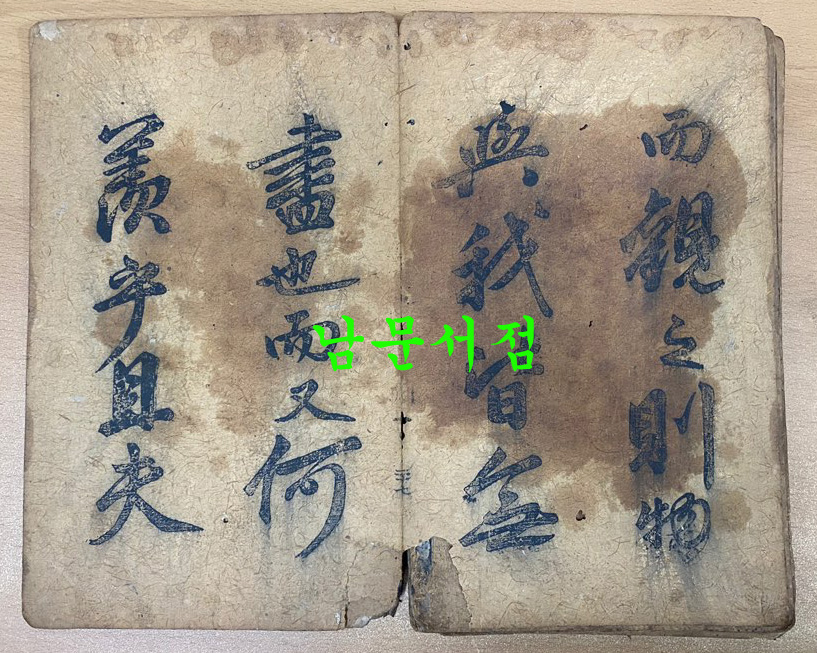 而觀之則物
與我皆無
盡也而又何
羨乎且夫
남문서점